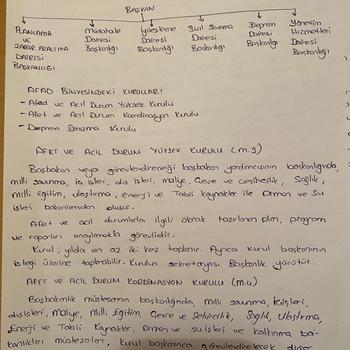 BAŞKAN
PLANLAMA VE ZARAR AZALTMA DAİRESİ BAŞKANLIĞI
Müdahale Dairesi Başkanlığı
İyileştirme Dairesi Başkanlığı
Sivil Savunma Dairesi Başkanlığı
Deprem Dairesi Başkanlığı
Yönetim Hizmetleri Dairesi Başkanlığı
AFAD BÜNYESİNDEKİ KURULLARI
- Afed ve Acil Durum Yüksek Kurulu
- Afet ve Acil Durum Koordinasyon Kurulu
- Deprem Danışma Kurulu
AFET VE ACİL DURUM YÜKSEK KURULU (m.3)
Başbakan veya görevlendireceği başbakan yardımcısının başkanlığında,
milli savunma, iç işleri, dış işleri, maliye, Çevre ve Şehircilik, Sağlık,
milli eğitim, ulaştırma, enerji ve Tabii kaynaklar ile Orman ve Su
işleri bakanlarından oluşur.
Afet ve acil durumlarla ilgili olarak hazırlanan plan, program
ve raporları onaylamakla görevlidir.
Kurul, yılda en az iki kez toplanır. Ayrıca kurul başkanının
isteği üzerine toplanabilir. Kurulun sekreteryası Başkanlık yürütür.
AFET VE ACİL DURUM KORDİNASYON KURULU (m.4)
Başbakanlık müsteşarının başkanlığında, Milli savunma, İçişleri,
dışişleri, Maliye, Milli Eğitim, Çevre ve Şehircilik, Sağlık, Ulaştırma,
Enerji ve Tabii Kaynaklar, Orman ve su işleri ve kalkınma ba-
kanlıkları müsteşarları, kurul başkanınca görevlendirilecek diğer